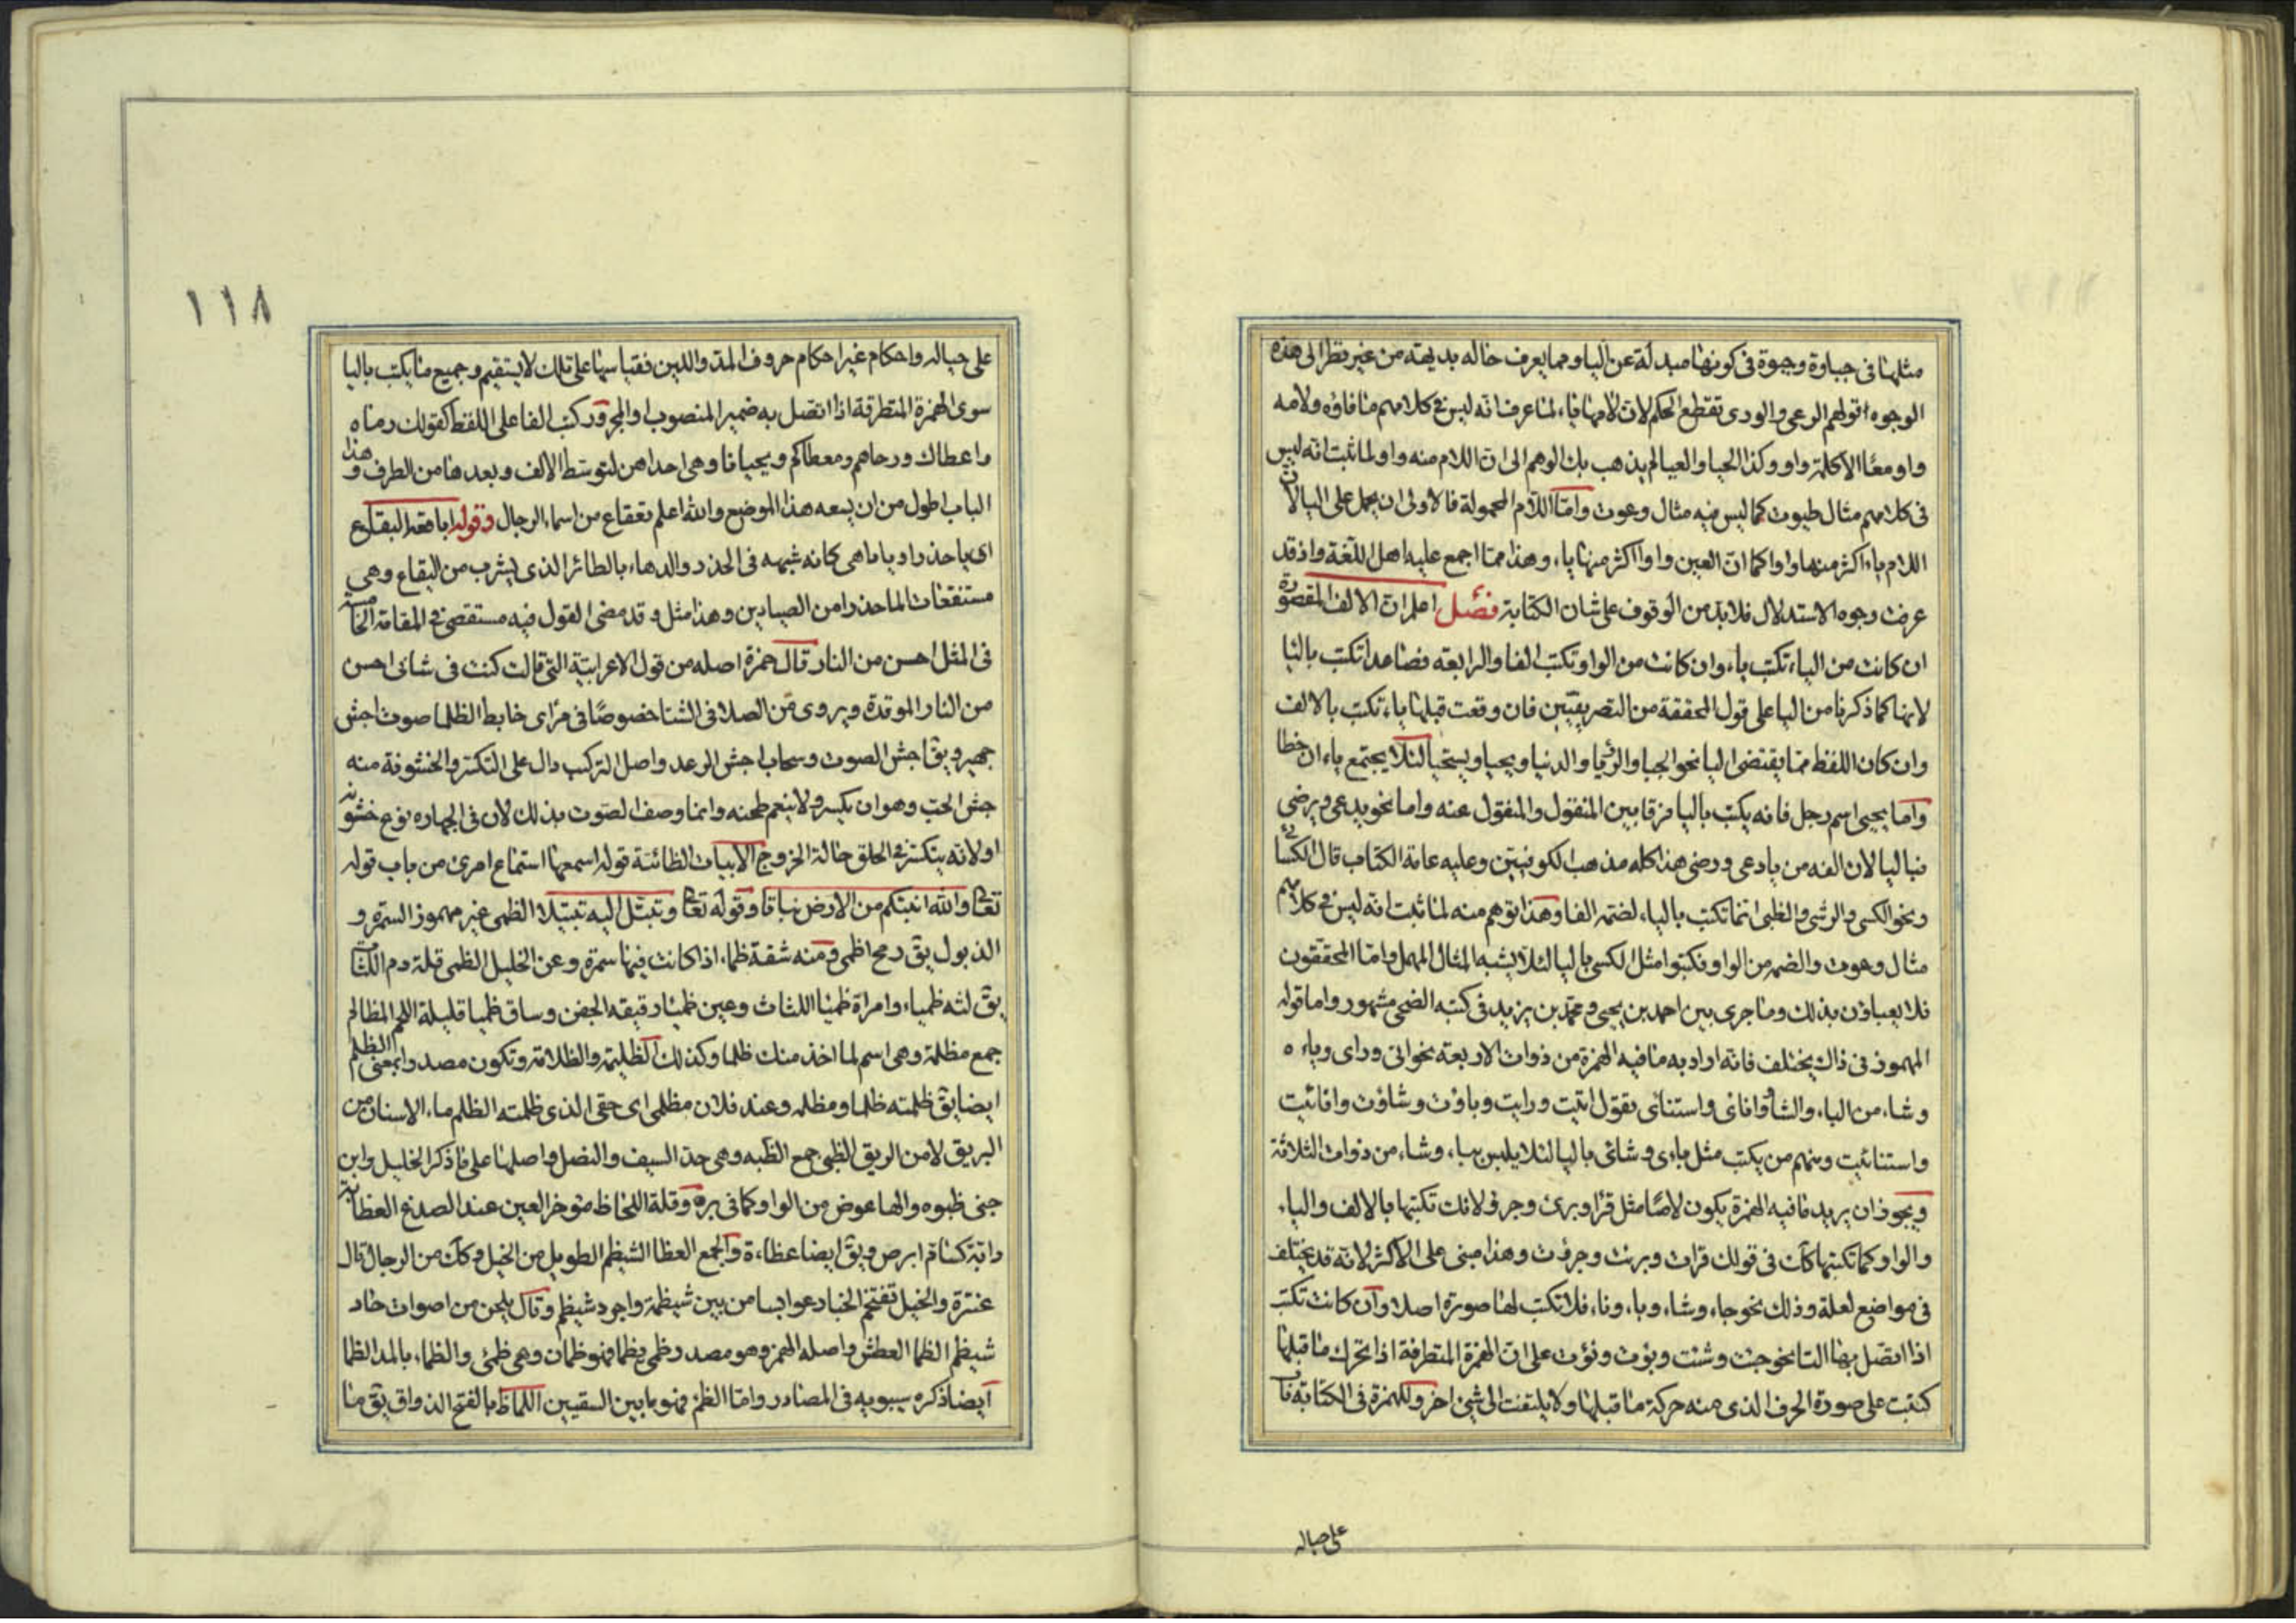 مثلها فى جباوة وجبوة فى كونها مبدلة عن اليا ومما يعرف حاله بديهته من غير نظر الى هذه
الوجوه قولهم الوعى والورى تقطع الحكم لان لامها ياء لما عرف انه ليس فى كلامهم ما فاؤه ولامه
واو معًا الا كلمة واو وكذا الحيا والعيا لم يذهب بك الوهم الى ان اللام منه واو لما ثبت انه ليس
فى كلامهم مثال حيوت كما ليس فيه مثال وعوت واما اللام المجهولة فالاولى ان يحمل على اليا لان
اللام ياء اكثر منها واوا كما ان العين واوا اكثر منها ياء وهذا مما اجمع عليه اهل اللغة واذ قد
عرفت وجوه الاستدلال فلا بد من الوقوف على شان الكتابة فصل اعلم ان الالف المقصورة
ان كانت من الياء تكتب ياء وان كانت من الواو تكتب الفا والرابعة فصاعدا تكتب باليا
لانها كما ذكرنا من اليا على قول المحققة من التصريفيين فان وقعت قبلها ياء تكتب بالالف
وان كان اللفظ مما يقتضى اليا نحو الحيا والرؤيا والدنيا ويحيا ويستحيا لئلا يجتمع ياء ان خطا
واما يحيى اسم رجل فانه يكتب باليا فرقا بين المنقول والمنقول عنه واما نحو يدعى ويرضى
فباليا لان الفه من يا دعى ورضى هذا كله مذهب الكوفيين وعليه عامة الكتاب قال الكسائى
ونحو الكسى والرشى والظبى انما تكتب باليا لضمة الفا وهذا توهم منه لما ثبت انه ليس فى كلامهم
مثال وهوت والضم من الواو فكتبوا مثل الكسى باليا لئلا يشبه المثال المهمل واما المحققون
فلا يعباؤن بذلك وما جرى بين احمد بن يحيى ومحمد بن يزيد فى كتبه الضحى مشهور واما قوله
المهموز فى ذاك يختلف فانه اراد به ما فيه الهمزة من ذوات الاربعة نحو انى وراى وباء
وشاء من الياء والشأو وانأى واستنأى تقول اتيت ورايت وباؤت وشاؤت وانائيت
واستنائيت ومنهم من يكتب مثل باءى وشائى باليا لئلا يلبس بباء وشاء من ذوات الثلاثة
ويجوز ان يريد ما فيه الهمزة يكون لامًا مثل قرأ وبرئ وجرؤ لانك تكتبها بالالف والياء
والواو كما تكتبها كان فى قولك قرات وبرئت وجرؤت وهذا مبنى على الاكثر لانه قد يختلف
فى مواضع لعلة وذلك نحو جاء وشاء وباء وناء فلا تكتب لها صورة اصلا وان كانت تكتب
اذا اتصل بها التا نحو جئت وشئت وبؤت ونؤت على ان الهمزة المتطرفة اذا تحرك ما قبلها
كتبت على صورة الحرف الذى منه حركة ما قبلها ولا يلتفت الى شئ اخر وللهمزة فى الكتابة باب
على حياله
١١٨
على حياله واحكام غير احكام حروف المد واللين فقياسها على تلك لا يستقيم وجميع ما يكتب باليا
سوى الهمزة المتطرفة اذا اتصل به ضمير المنصوب او المجرور كتب الفا على اللفظ كقولك رماه
واعطاك ورحاهم ومعطاكم ويحيانا وهى احداهن لتوسط الالف وبعدها من الطرف وهذا
الباب اطول من ان يسعه هذا الموضع والله اعلم تعقاع من اسماء الرجال وقوله ابا قعد البقاع
اى يا حذرا ويا داهى كانه شبهه فى الحذر والدهاء بالطائر الذى يشرب من البقاع وهى
مستنقعات الما حذرا من الصيادين وهذا مثل وقد مضى القول فيه مستقصى فى المقامة الخامسة
فى المثل احسن من النار قال حمزة اصله من قول الاعرابية التى قالت كنت فى شبابى احسن
من النار الموقدة ويروى من الصلا فى الشتا خصوصًا فى مراى خابط الظلما صوت اجش
جهير ويق اجش الصوت وسحاب اجش الرعد واصل التركيب دال على التكسر والخشونة منه
جش الحب وهو ان يكسره ولا ينعم طحنه وانما وصف الصوت بذلك لان فى الجهارة نوع خشونة
او لانه يتكسر فى الحلق حالة الخروج الابيات الظائية قوله اسمعها استماع امرئ من باب قوله
تعالى والله انبتكم من الارض نباتا وقوله تعالى وتبتل اليه تبتيلا الظمى غير مهموز السمرة و
الذبول يق رمح اظمى ومنه شفة ظمياء اذا كانت فيها سمرة وعن الخليل الظمى قلة دم اللثات
يق لثة ظمياء وامراة ظميا اللثات وعين ظميا رقيقه الجفن وساق ظميا قليلة اللحم المظالم
جمع مظلمة وهى اسم لما اخذ منك ظلما وكذلك الظليمة والظلامة وتكون مصدرا بمعنى الظلم
ايضا يق ظلمته ظلما ومظلمه وعند فلان مظلمى اى حقى الذى ظلمته الظلم ماء الاسنان من
البريق لا من الريق الظبى جمع الظبه وهى حد السيف والنصل واصلها على ما ذكر الخليل وابن
جنى ظبوه والها عوض من الواو كما فى بره وقلة اللحاظ مؤخر العين عند الصدغ العظاية
دابة كسام ابرص ويق ايضا عظاءة والجمع العظا الشيظم الطويل من الخيل وكان من الرجال قال
عنترة والخيل تقتحم الخبار عوابسا من بين شيظمة واجرد شيظم وقال يلحن من اصوات حاد
شيظم الظما العطش واصله الهمز وهو مصدر ظمى يظما فهو ظمان وهى ظمئ والظماء بالمد الظما
ايضا ذكره سيبويه فى المصادر واما الظمء فهو ما بين السقيين اللماظ بالفتح الذواق يق ما